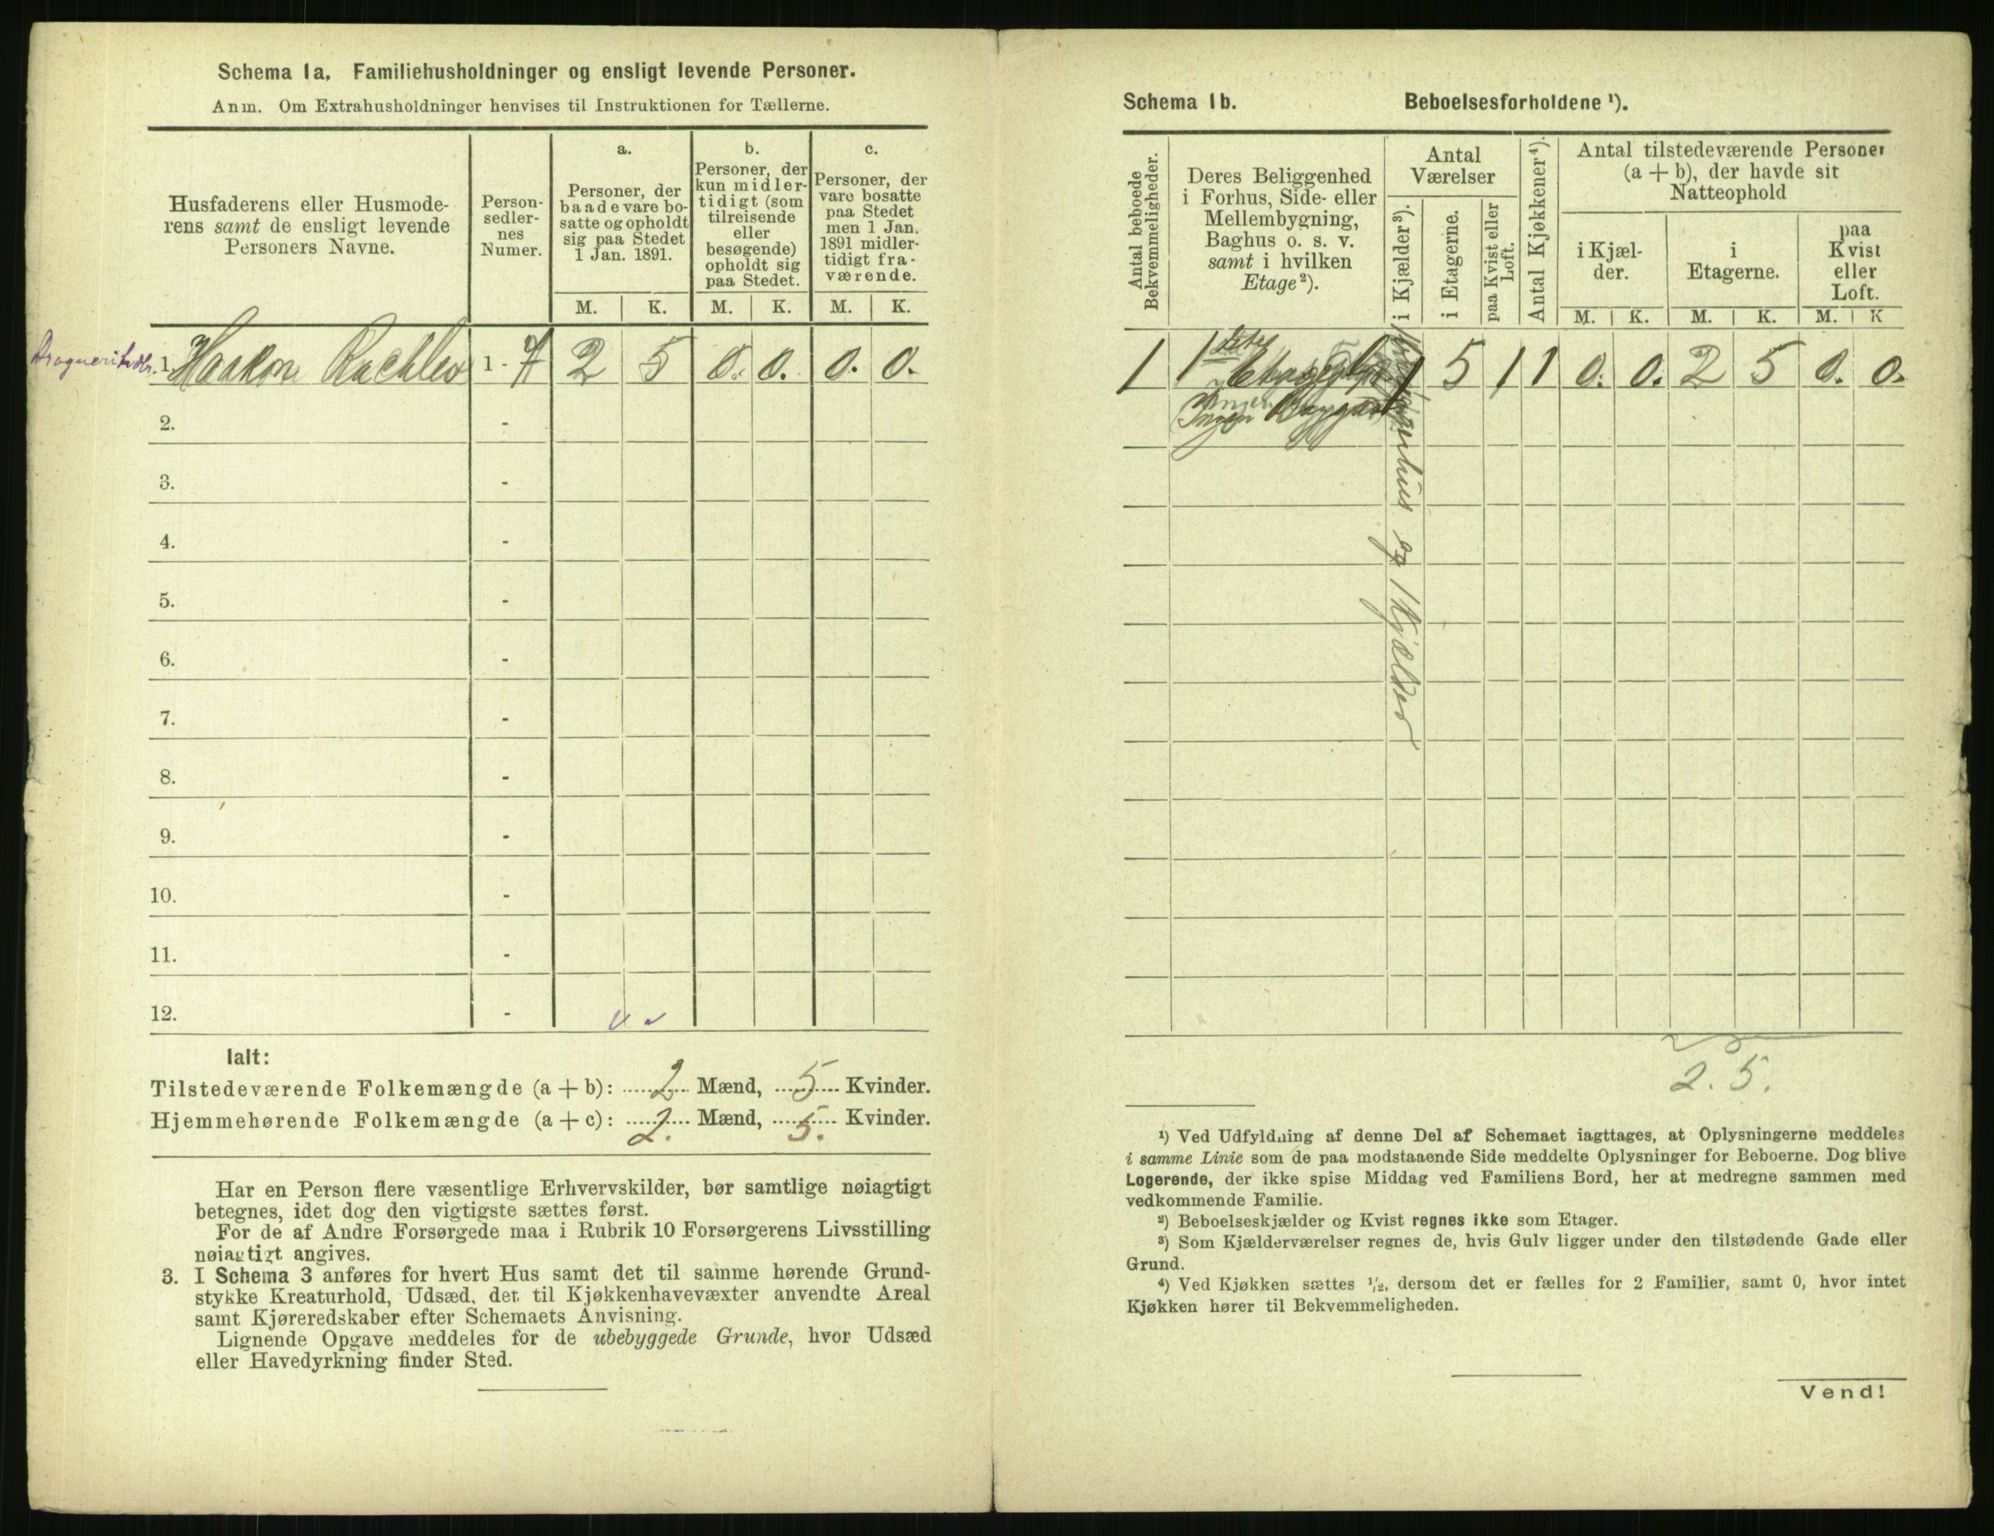 Schema 1a. Familiehusholdninger og ensligt levende Personer.
Anm. Om Extrahusholdninger henvises til Instruktionen for Tællerne.
Husfaderens eller Husmode-
rens samt de ensligt levende
Personers Navne.
Person-
sedler-
nes
Numer.
a.
Personer, der
baade vare bo-
satte og opholdt
sig paa Stedet
1 Jan. 1891.
b.
Personer, der
kun midler-
tidigt (som
tilreisende
eller
besøgende)
opholdt sig
paa Stedet.
c.
Personer, der
vare bosatte
paa Stedet
men 1 Jan.
1891 midler-
tidigt fra-
værende.
M. K. M. K. M. K.
1. Haakon Rachlew 1 - 7 2 5 0. 0. 0. 0.
2. -
3. -
4. -
5. -
6. -
7. -
8. -
9. -
10. -
11. -
12. -
Ialt:
Tilstedeværende Folkemængde (a + b): 2 Mænd, 5 Kvinder.
Hjemmehørende Folkemængde (a + c): 2. Mænd, 5. Kvinder.
Har en Person flere væsentlige Erhvervskilder, bør samtlige nøiagtigt
betegnes, idet dog den vigtigste sættes først.
For de af Andre Forsørgede maa i Rubrik 10 Forsørgerens Livsstilling
nøiagtigt angives.
3. I Schema 3 anføres for hvert Hus samt det til samme hørende Grund-
stykke Kreaturhold, Udsæd, det til Kjøkkenhavevæxter anvendte Areal
samt Kjøreredskaber efter Schemaets Anvisning.
Lignende Opgave meddeles for de ubebyggede Grunde, hvor Udsæd
eller Havedyrkning finder Sted.
Schema 1b. Beboelsesforholdene ¹).
Antal beboede
Bekvemmeligheder.
Deres Beliggenhed
i Forhus, Side- eller
Mellembygning,
Baghus o. s. v.
samt i hvilken
Etage²).
Antal
Værelser
i Kjælder³).
i Etagerne.
paa Kvist eller
Loft.
Antal Kjøkkener⁴).
Antal tilstedeværende Personer
(a + b), der havde sit
Natteophold
i Kjæl-
der.
i
Etagerne.
paa
Kvist
eller
Loft.
M. K. M. K. M. K
1 1 Etage 1 5 1 1 0. 0. 2 5 0. 0.
Ingen
og 1 Kjælder
2. 5.
¹) Ved Udfyldning af denne Del af Schemaet iagttages, at Oplysningerne meddeles
i samme Linie som de paa modstaaende Side meddelte Oplysninger for Beboerne. Dog blive
Logerende, der ikke spise Middag ved Familiens Bord, her at medregne sammen med
vedkommende Familie.
²) Beboelseskjælder og Kvist regnes ikke som Etager.
³) Som Kjælderværelser regnes de, hvis Gulv ligger under den tilstødende Gade eller
Grund.
⁴) Ved Kjøkken sættes ½, dersom det er fælles for 2 Familier, samt 0, hvor intet
Kjøkken hører til Bekvemmeligheden.
Vend!